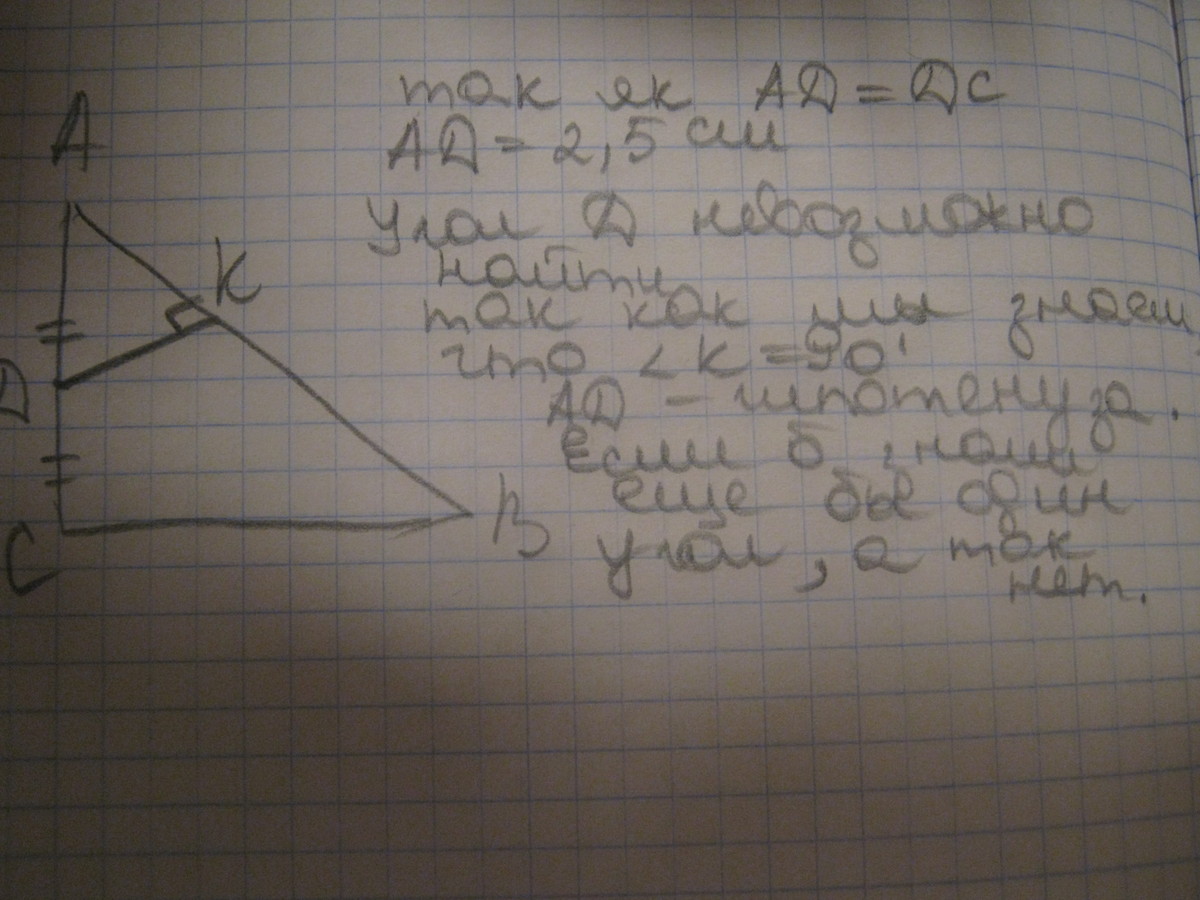 A
K
D
C
B
так як AD = DC
AD = 2,5 см
Угол D невозможно
найти
так как мы знаем,
что <K = 90'
AD - гипотенуза.
Если б знали
еще бы один
угол, а так
нет.